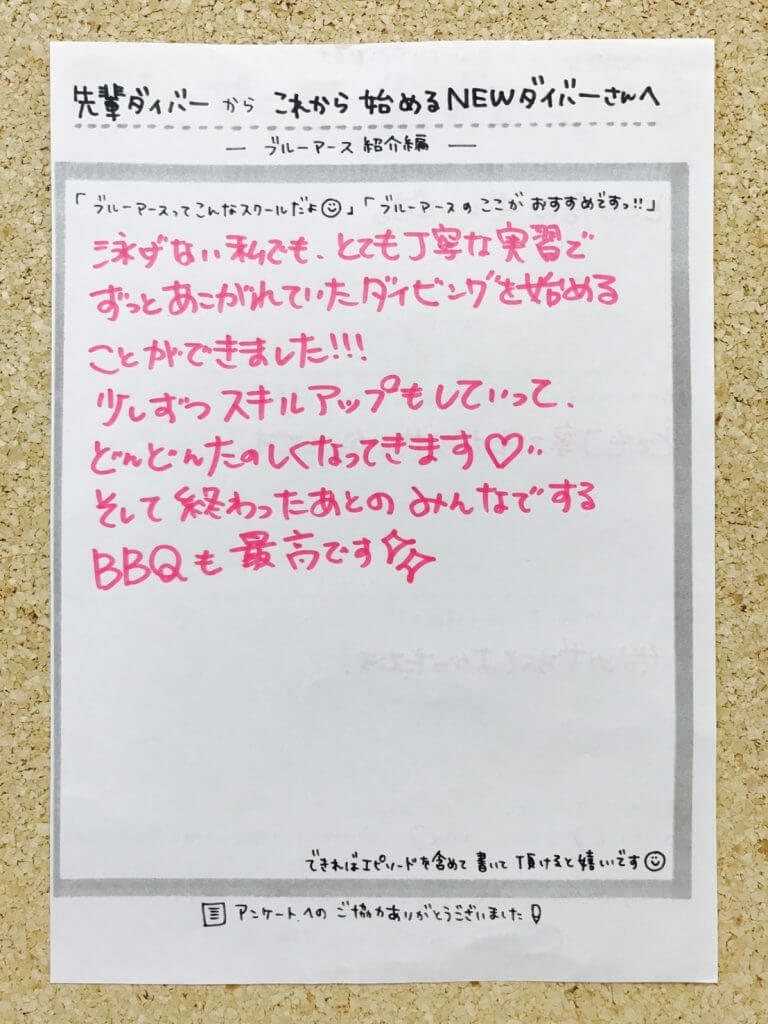 先輩ダイバーから これから始めるNEWダイバーさんへ
― ブルーアース 紹介編 ―
「ブルーアースってこんなスクールだよ☺」「ブルーアースのここが おすすめですっ!!」
泳げない私でも、とても丁寧な実習で
ずっとあこがれていたダイビングを始める
ことができました!!!
少しずつスキルアップもしていって、
どんどんたのしくなってきます♡‥
そして終わったあとのみんなでする
BBQも最高です☆☆
できればエピソードを含めて書いて頂けると嬉しいです☺
アンケートへのご協力ありがとうございました